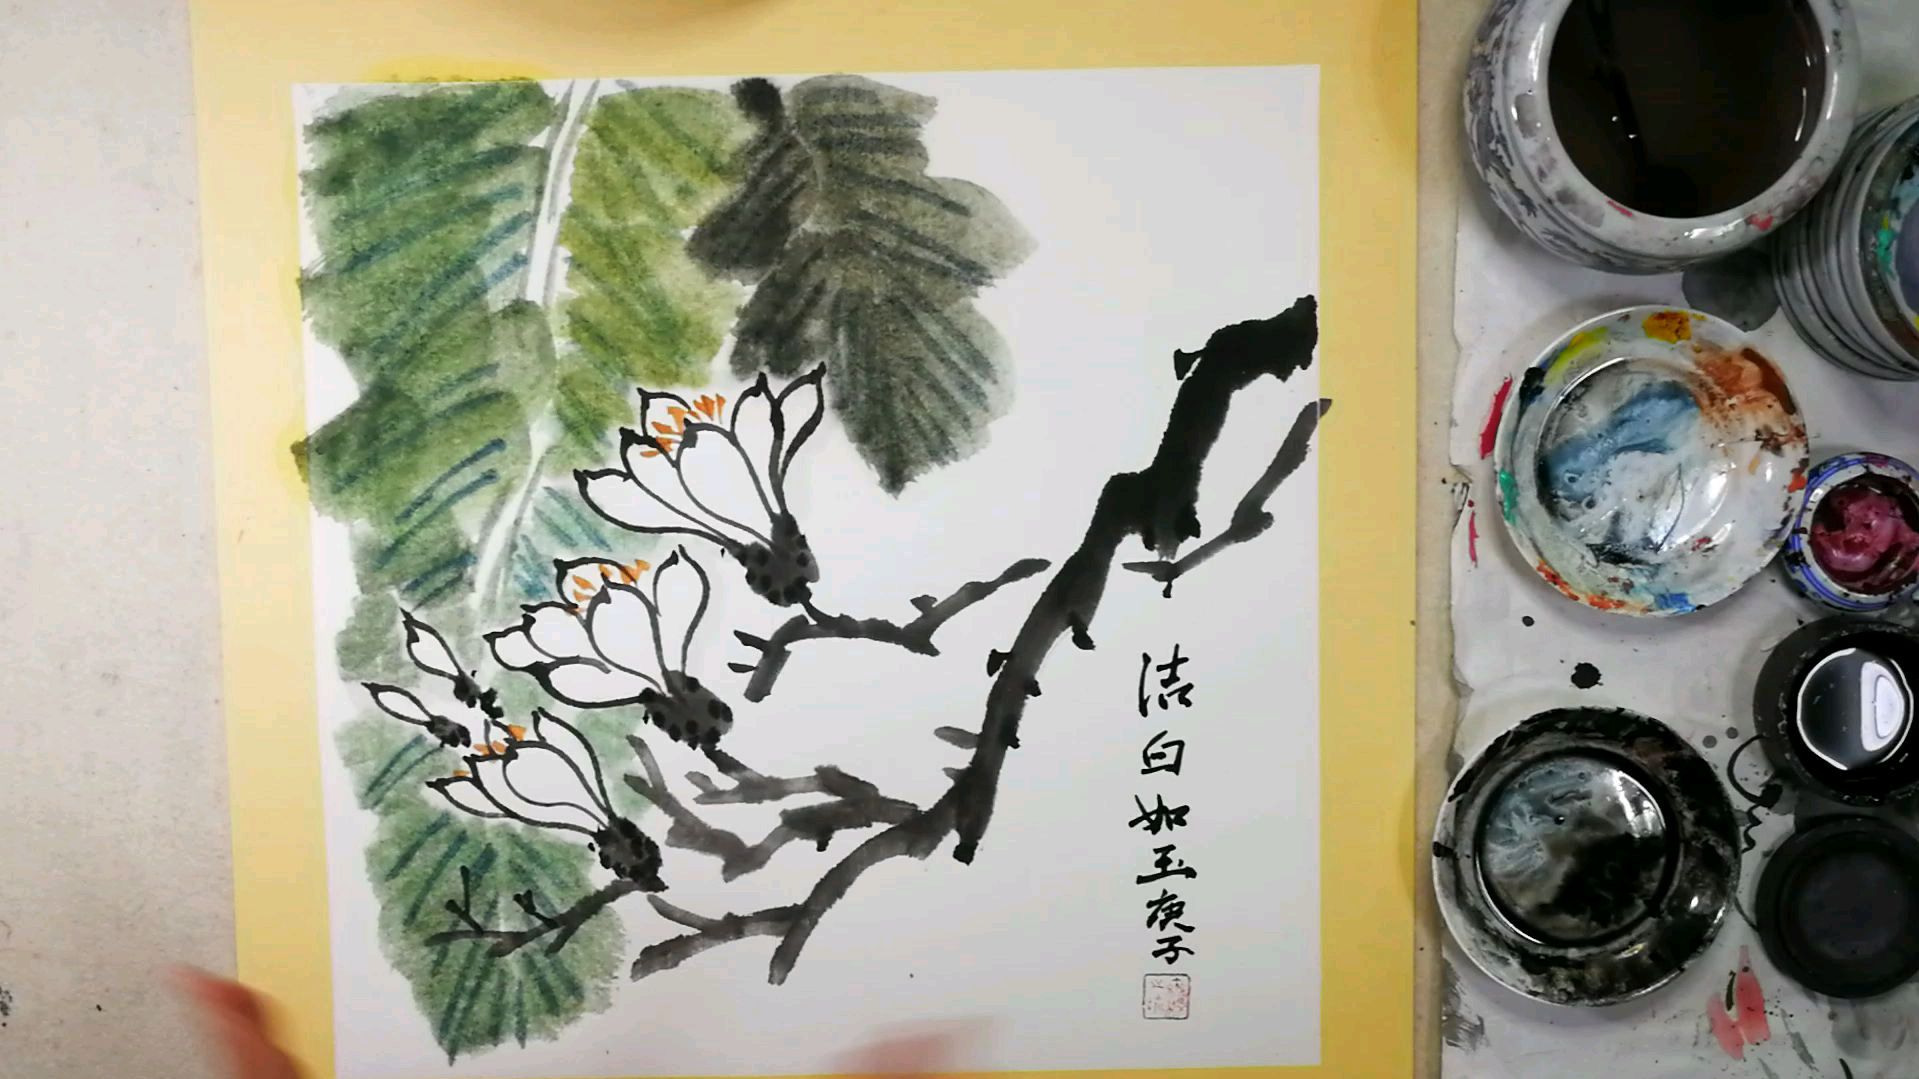 洁白如玉庚子